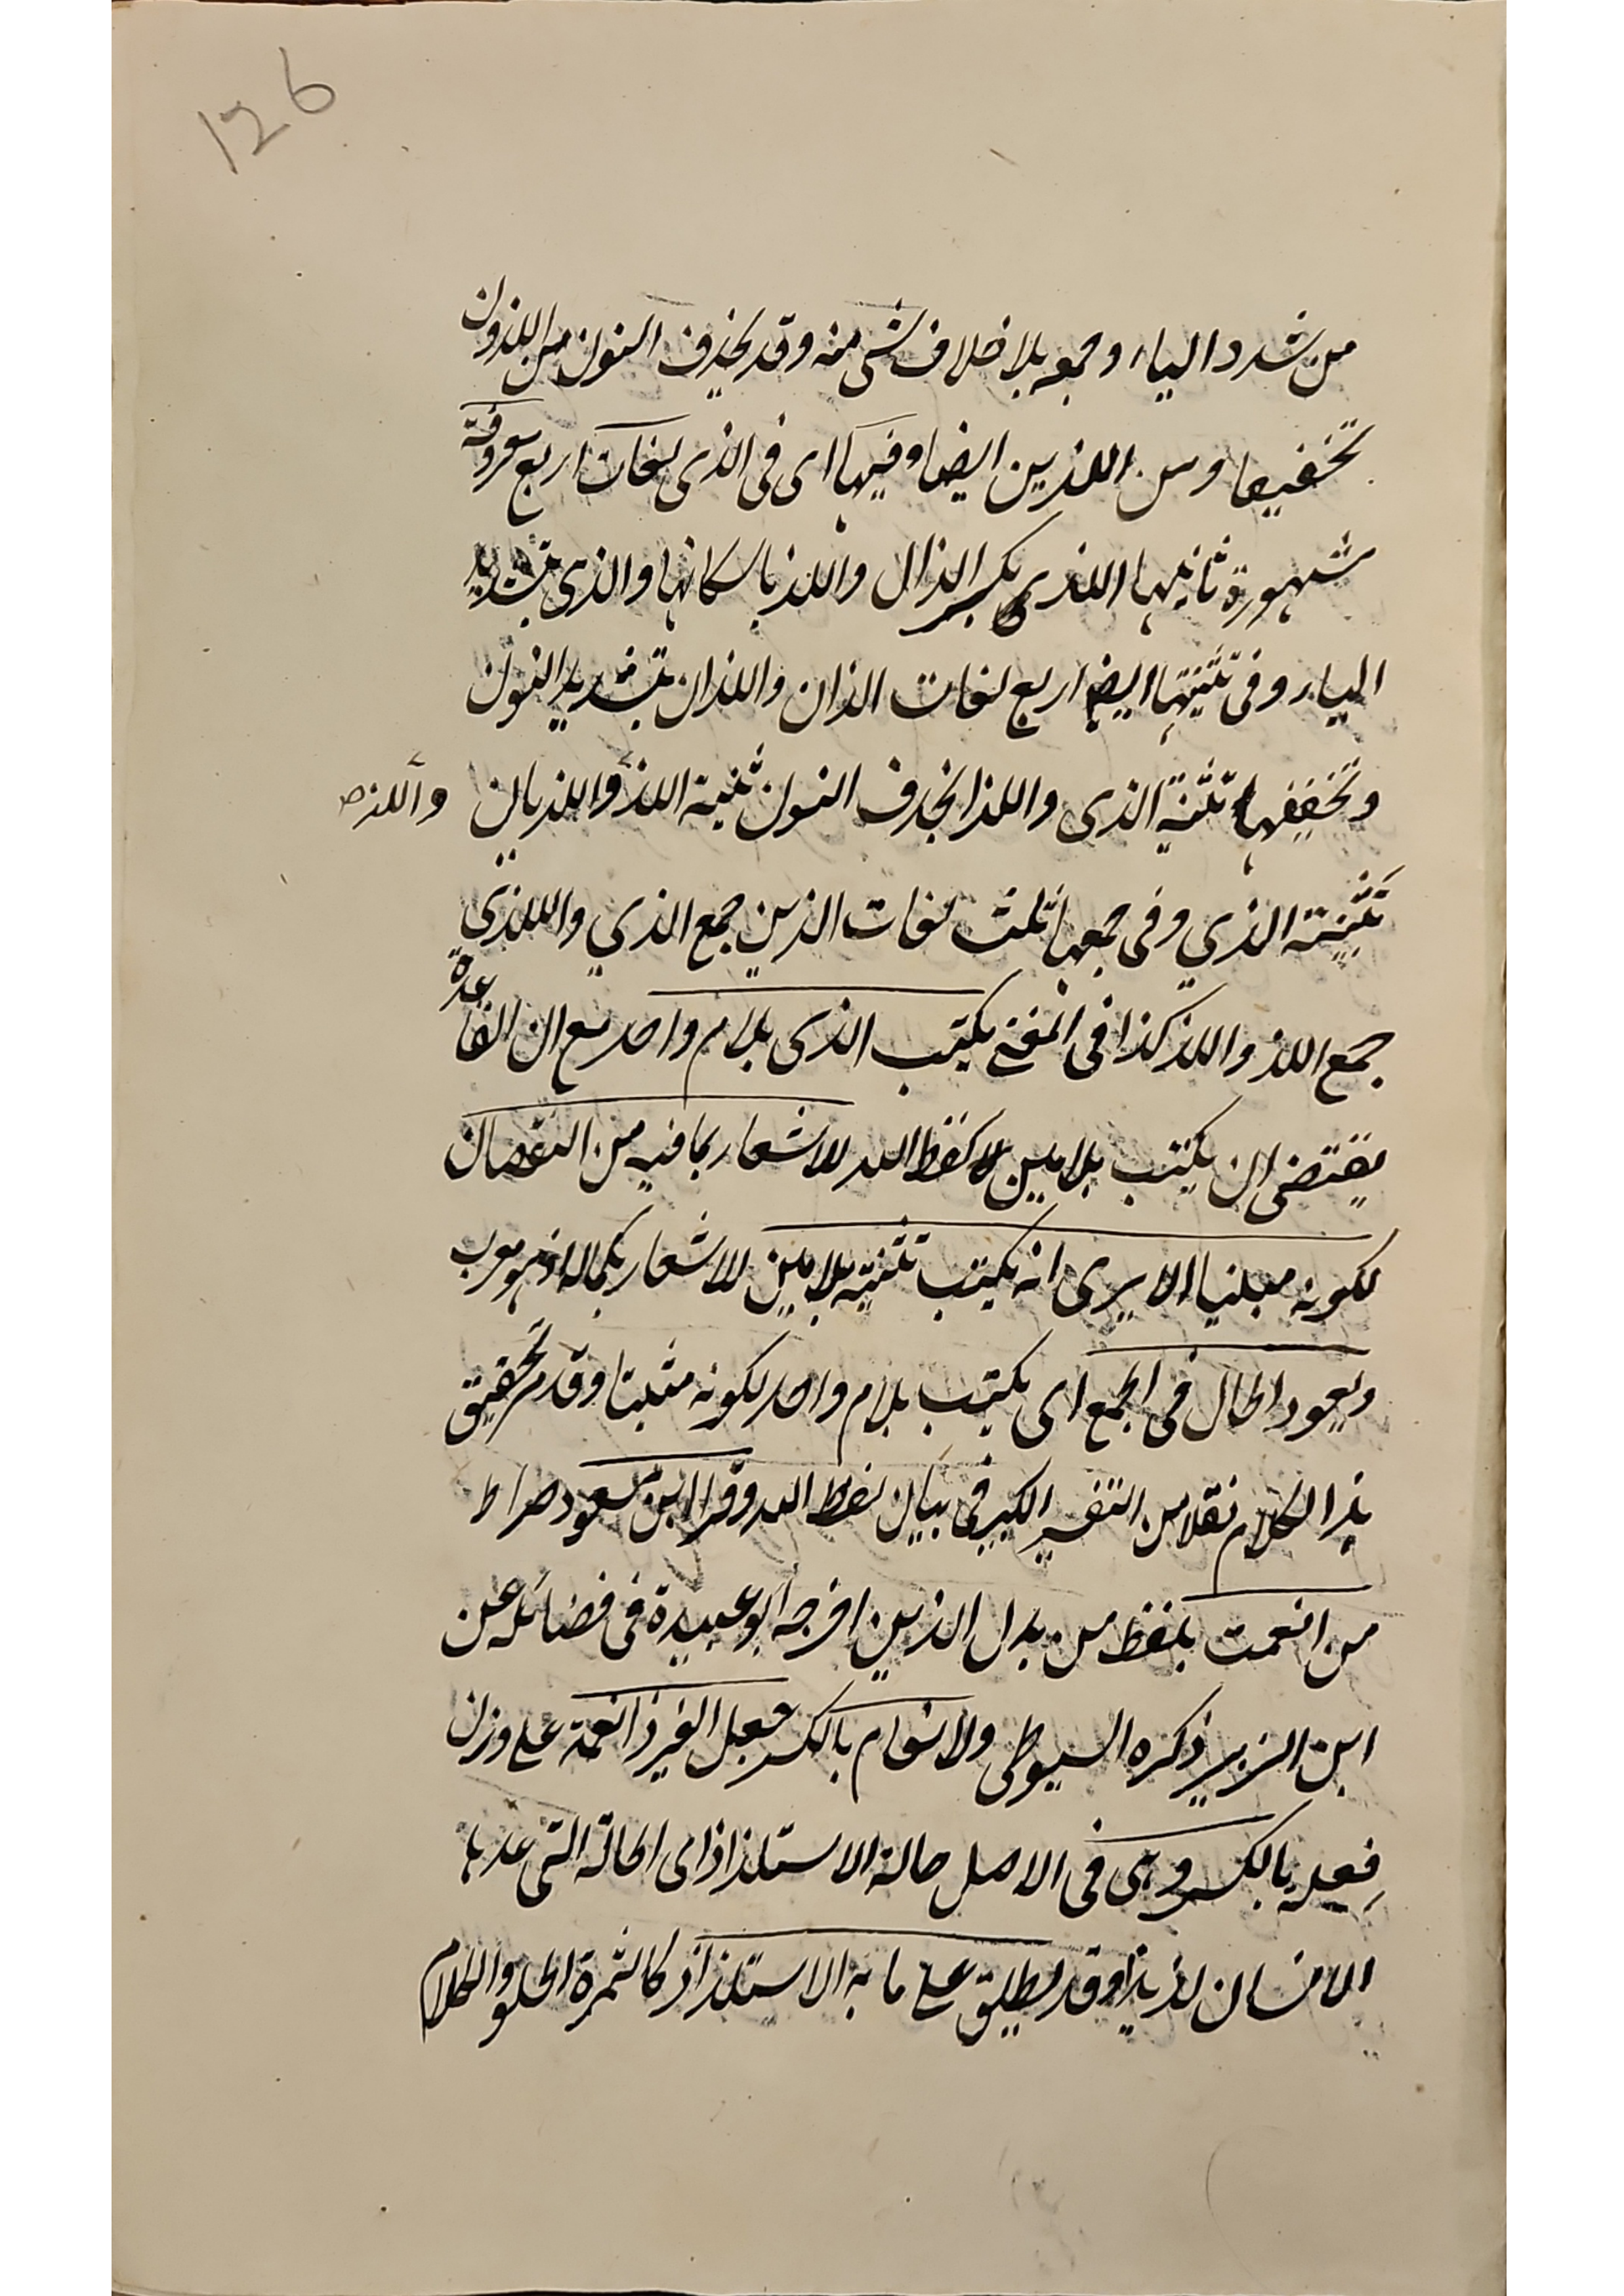 126
من شدد الياء وجمعه بلا خلاف شئ منه وقد يحذف النون من اللذون
تخفيفا ومن اللذين ايضا وفيها اى فى الذى لغات اربع معروفة
مشهورة ثانيها اللذى بكسر الذال واللذ باسكانها والذى بتشديد
الياء وفى تثنيتها ايضا اربع لغات الذان واللذان بتشديد النون
وتخفيفها تثنية الذى واللذا بحذف النون تثنية اللذ واللذيان
واللذ صح
تثنية الذي وفى جمعها ثلث لغات الذين جمع الذي واللذي
جمع اللذ واللذ كذا فى المغنى يكتب الذى بلام واحد مع ان القاعدة
يقتضى ان يكتب بلامين كلفظ الله للاشعار بما فيه من النقصان
لكونه مبنيا الا يرى انه يكتب تثنيته بلامين للاشعار بكماله اذ هو معرب
ويعود الحال فى الجمع اى يكتب بلام واحد لكونه مثبتا وقد مر تحقيق
هذا الكلام نقلا من التفسير الكبير فى بيان لفظ الله وقرا ابن مسعود صراط
من انعمت بلفظ من بدل الذين اخرجه ابو عبيدة فى فضائله عن
ابن الزبير ذكره السيوطى والانعام بالكسر جعل الغير ذا نعمة على وزن
فعلة بالكسر وهى فى الاصل حالة الاستلذاذ اى الحالة التى عدها
الانسان لذيذا وقد يطلق على ما به الاستلذاذ كالثمرة الحلو والكلام